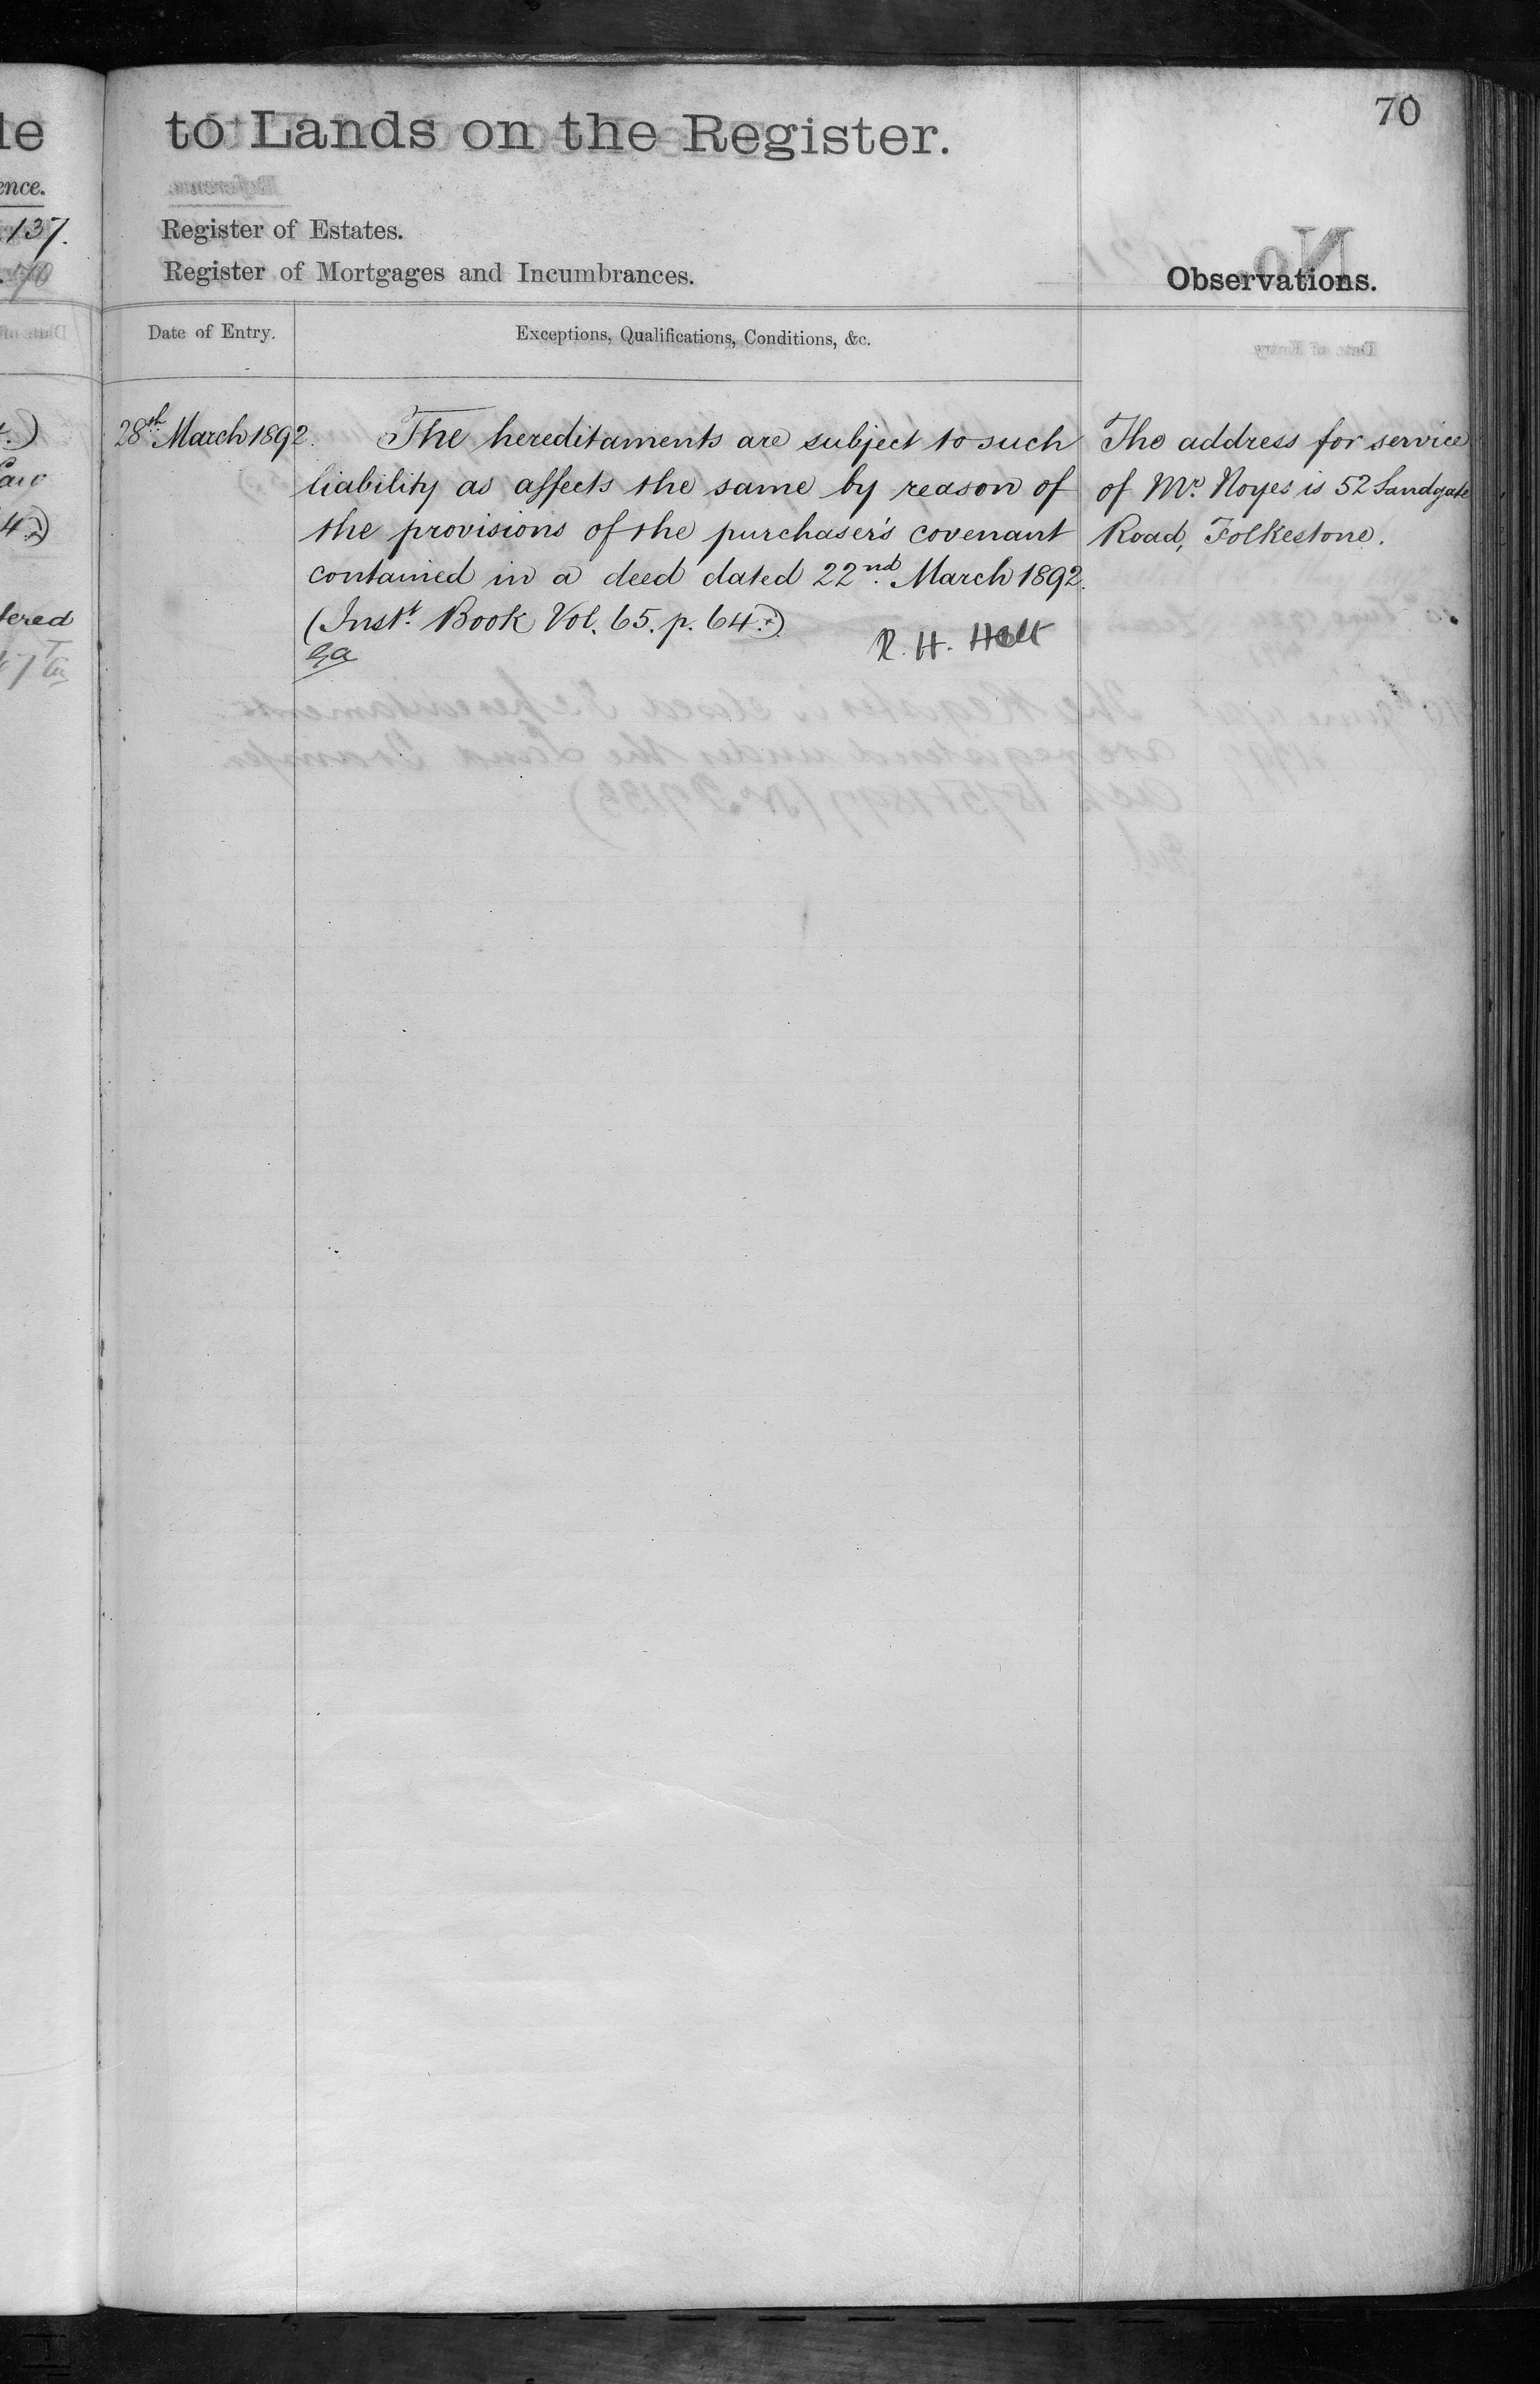 70
to Lands on the Register.
Register of Estates.
Register of Mortgages and Incumbrances.
Observations.
Date of Entry.
Exceptions, Qualifications, Conditions, &c.
28th March 1892.
The hereditaments are subject to such
liability as affects the same by reason of
the provisions of the purchaser's covenant
contained in a deed dated 22nd March 1892.
(Inst. Book Vol. 65. p. 64.)
R. H. Holt
The address for service
of Mr. Noyes is 52 Sandgate
Road, Folkestone.
le
ence.
137.
170
4.)
4.)
tered